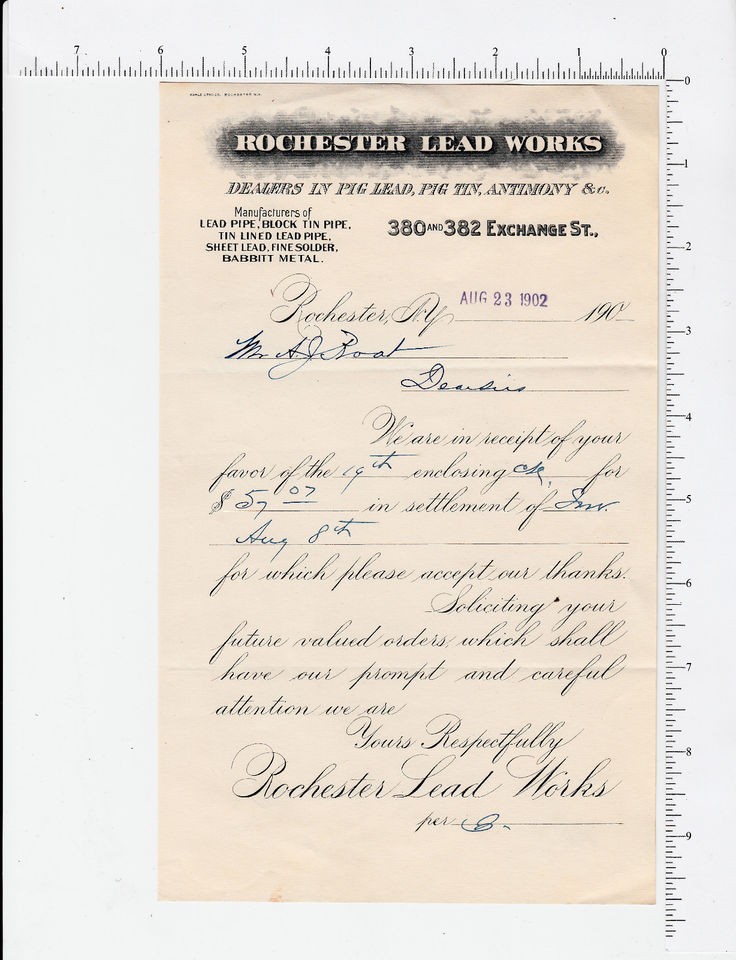 7 6 5 4 3 2 1 0
0
1
2
3
4
5
6
7
8
9
ROCHESTER LEAD WORKS
DEALERS IN PIG LEAD, PIG TIN, ANTIMONY &c.
Manufacturers of
LEAD PIPE, BLOCK TIN PIPE,
TIN LINED LEAD PIPE,
SHEET LEAD, FINE SOLDER,
BABBITT METAL.
380 AND 382 EXCHANGE ST.,
Rochester, N.Y. AUG 23 1902 190
Mr A. J. Roat
We are in receipt of your
favor of the 19th enclosing ck. for
$ 57 07 in settlement of Inv.
Aug 8th
for which please accept our thanks.
Soliciting your
future valued orders, which shall
have our prompt and careful
attention we are
Yours Respectfully
Rochester Lead Works
per